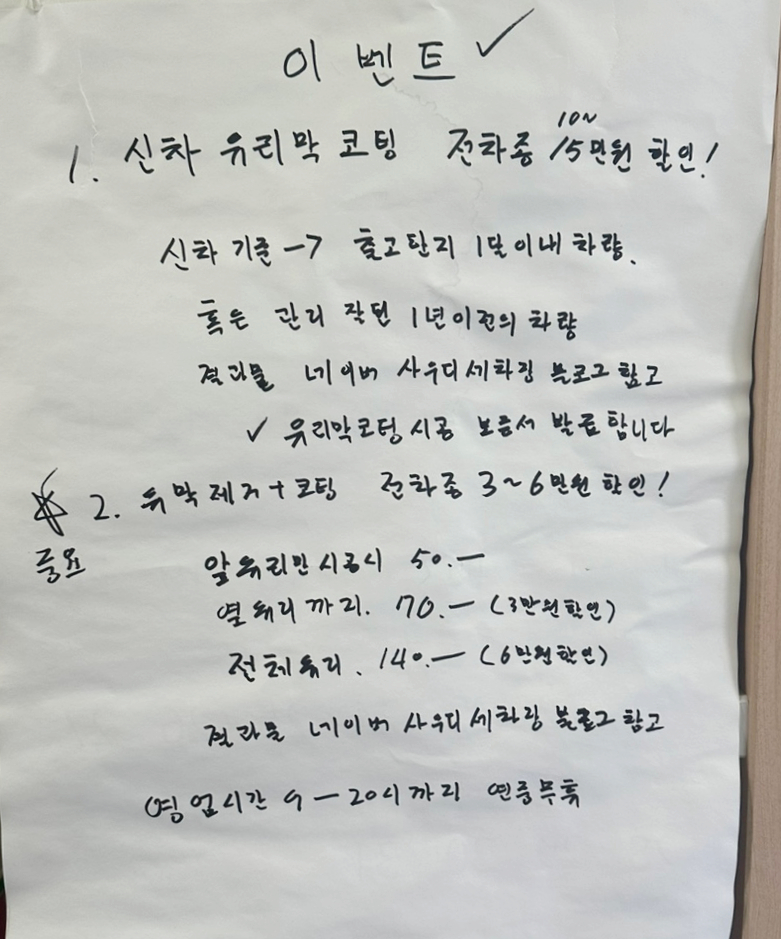 이벤트 ✓
1. 신차 유리막 코팅 전차종 10~15만원 할인!
신차 기준 → 출고한지 1달이내 차량.
혹은 관리 잘된 1년이전의 차량
결과물 네이버 사우디세차장 블로그 참고
✓ 유리막코팅 시공 보증서 발급합니다
☆ 2. 유막제거+코팅 전차종 3~6만원 할인!
중요
앞유리만 시공시 50.—
옆유리까지. 70.— (3만원할인)
전체유리. 140.— (6만원할인)
결과물 네이버 사우디세차장 블로그 참고
영업시간 9—20시까지 연중무휴